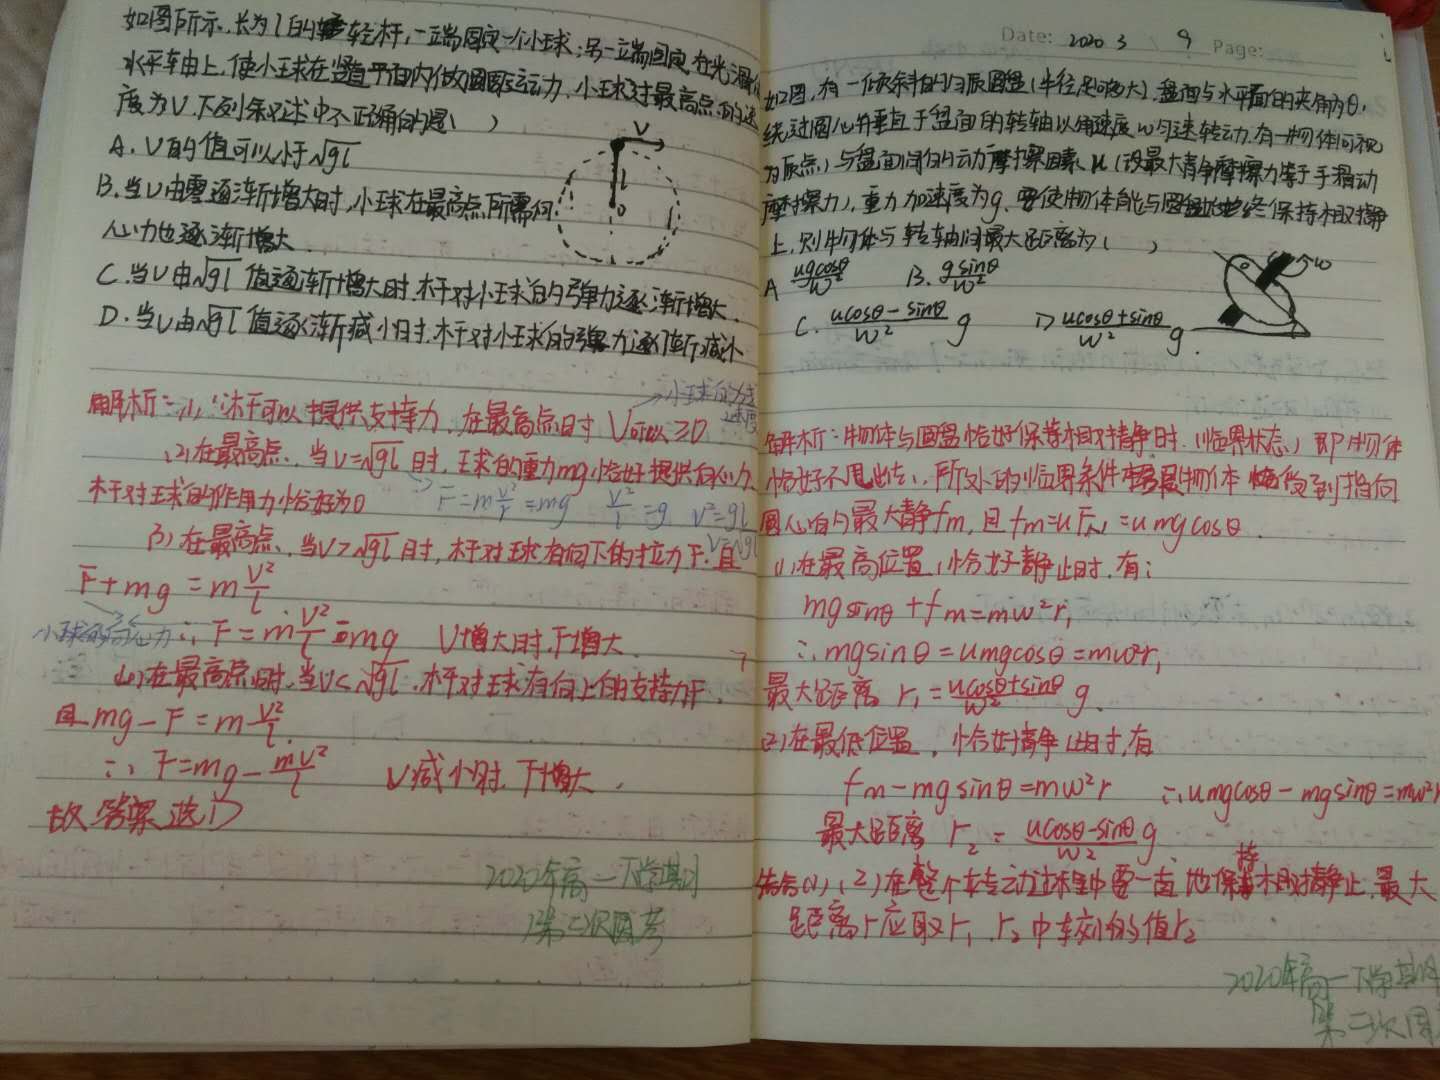 如图所示,长为l的轻杆,一端固定一个小球;另一端固定在光滑的
水平轴上,使小球在竖直平面内做圆周运动,小球过最高点的速
度为V.下列叙述中不正确的是( )
A.V的值可以小于√gl
B.当V由零逐渐增大时,小球在最高点所需向
心力也逐渐增大.
C.当V由√gl值逐渐增大时,杆对小球的弹力逐渐增大.
D.当V由√gl值逐渐减小时,杆对小球的弹力逐渐减小
V
l
o
解析:(1)∵杆可以提供支持力,在最高点时 V可以≥0
小球的线速度
(2)在最高点,当V=√gl时,球的重力mg恰好提供向心力,
杆对球的作用力恰好为0
F=mV²/l=mg V²/l=g V²=gl
V=√gl
(3)在最高点,当V>√gl时,杆对球有向下的拉力F.且
F+mg=mV²/l
小球的向心力
∴F=mV²/l-mg V增大时,F增大.
(4)在最高点时,当V<√gl,杆对球有向上的支持力F,
且mg-F=mV²/l
∴F=mg-mV²/l V减小时,F增大.
故答案选D
2020年高一下学期
第二次周考
Date: 2020 3 9 Page:
如图,有一倾斜的匀质圆盘(半径足够大).盘面与水平面的夹角为θ,
绕过圆心并垂直于盘面的转轴以角速度w匀速转动.有一物体(可视
为质点)与盘面间的动摩擦因素u(设最大静摩擦力等于滑动
摩擦力),重力加速度为g.要使物体能与圆盘始终保持相对静
止,则物体与转轴间最大距离为( )
A ugcosθ/w² B.gsinθ/w²
C.(ucosθ-sinθ)/w² g D (ucosθ+sinθ)/w² g.
w
θ
解析:物体与圆盘恰好保持相对静止时.(临界状态)即物体
恰好不甩出去,所处的临界条件是物体受到指向
圆心的最大静fm,且fm=uFN=umgcosθ.
(1)在最高位置,恰好静止时,有:
mgsinθ+fm=mw²r₁
∴mgsinθ=umgcosθ=mw²r₁
最大距离 r₁=(ucosθ+sinθ)/w² g.
(2)在最低位置,恰好静止时,有
fm-mgsinθ=mw²r ∴umgcosθ-mgsinθ=mw²r
最大距离 r₂=(ucosθ-sinθ)/w² g
结合(1),(2)在整个转动过程中要一直地保持相对静止.最大
距离r应取r₁.r₂中较小的值r₂
2020年高一下学期
第二次周